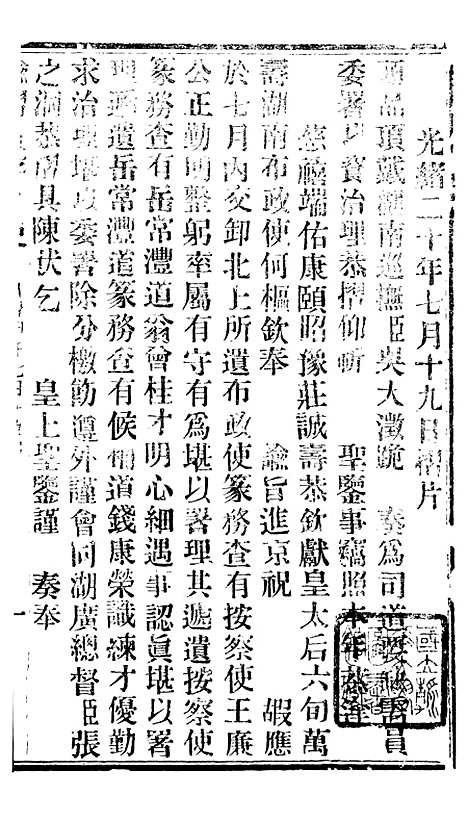 光緒二十年七月十九日摺片
頭品頂戴湖南巡撫臣吳大澂跪　奏爲司道要缺需員
委署以資治理恭摺仰祈　聖鑒事竊照本年恭逢
慈禧端佑康頤昭豫莊誠壽恭欽獻皇太后六旬萬
壽湖南布政使何樞欽奉　諭旨進京祝　嘏應
於七月內交卸北上所遺布政使篆務查有按察使王廉
公正勤明整躬率屬有守有爲堪以署理其遞遺按察使
篆務查有岳常澧道翁曾桂才明心細遇事認眞堪以署
理遞遺岳常澧道篆務查有候補道錢康榮識練才優勤
求治理堪以委署除分檄飭遵外謹會同湖廣總督臣張
之洞恭摺具陳伏乞　皇上聖鑒謹　奏奉